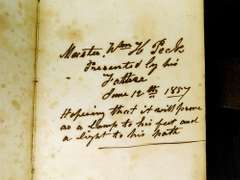 Master Wm H Peck
Presented by his
Father
June 12th 1857
Hopeing that it will prove
as a Lamp to his feet and
a Light to his path